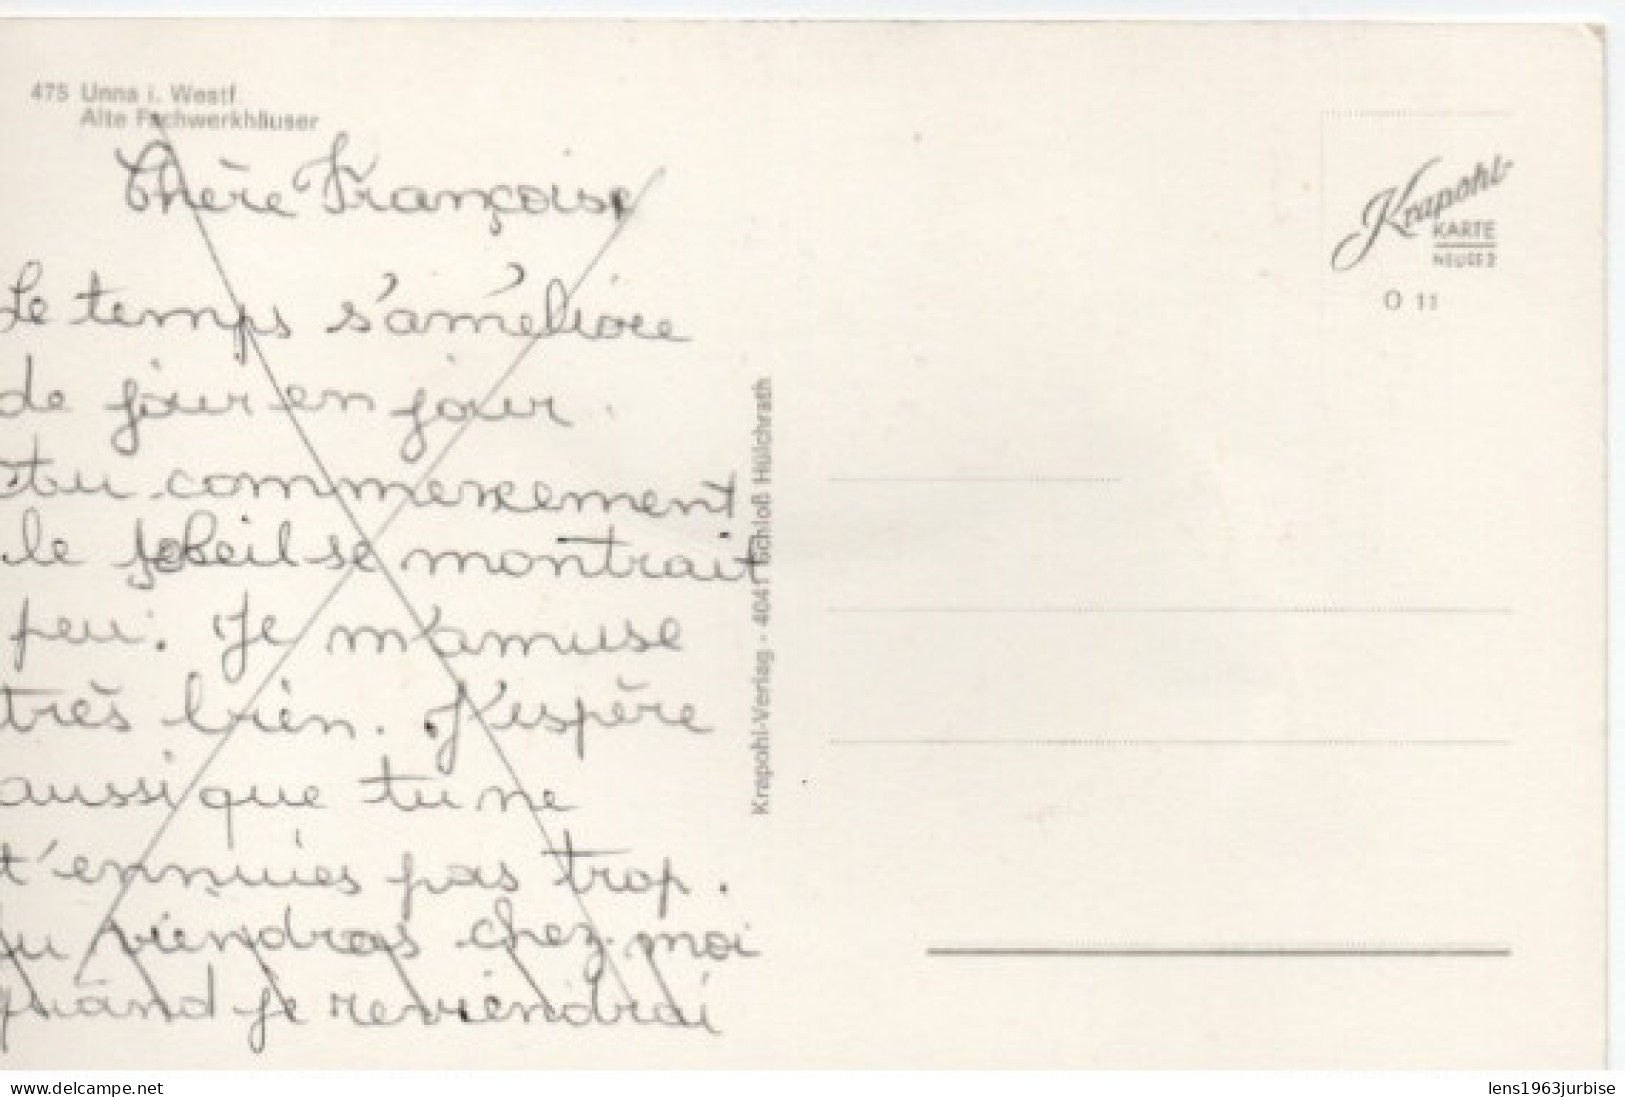 475 Unna i. Westf.
Alte Fachwerkhäuser
Chère Françoise
Le temps s'améliore
de jour en jour.
Au commencement
le soleil se montrait
peu. Je m'amuse
très bien. J'espère
aussi que tu ne
t'ennuies pas trop.
Tu viendras chez moi
quand je reviendrai
Krapohl-Verlag - 4041 Schloß Hülchrath
Krapohl-
KARTE
O 11
www.delcampe.net
lens1963jurbise